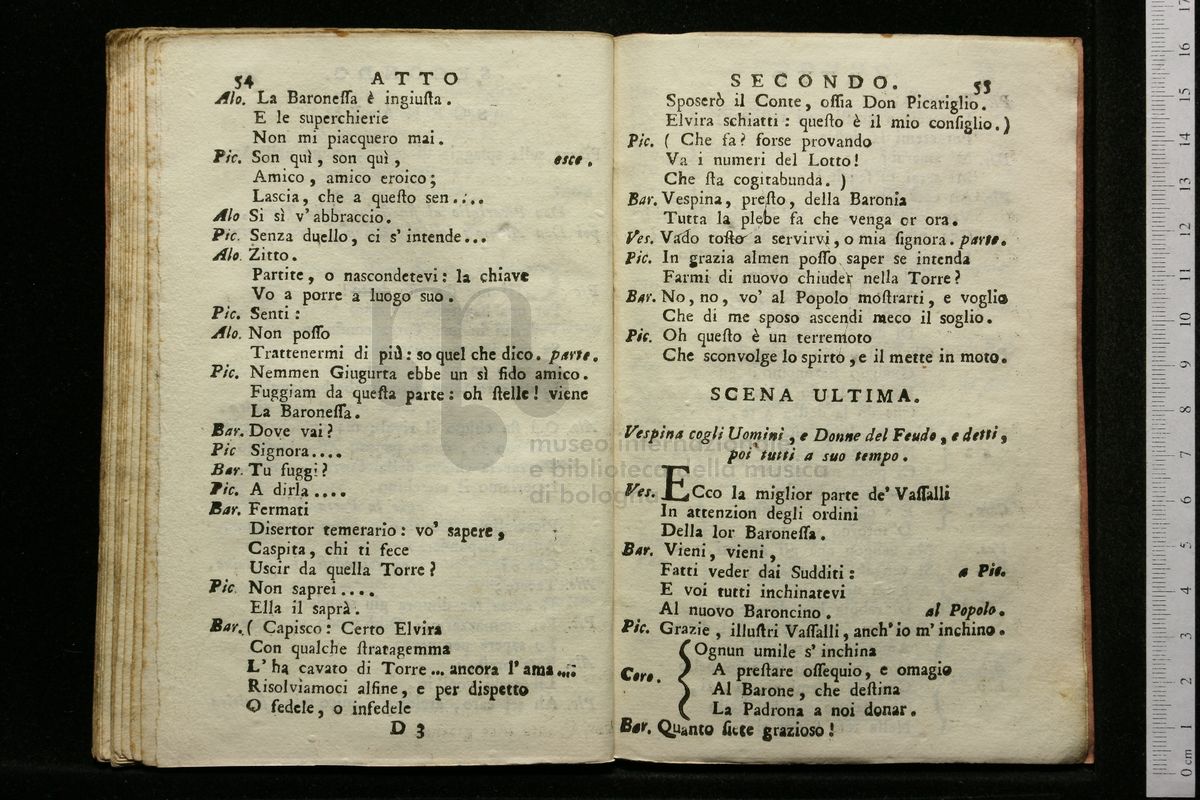 54 ATTO
Alo. La Baroneſſa è ingiuſta.
E le superchierie
Non mi piacquero mai.
Pic. Son quì, son quì, esce.
Amico, amico eroico;
Lascia, che a queſto sen....
Alo Si sì v' abbraccio.
Pic. Senza duello, ci s' intende...
Alo. Zitto.
Partite, o nascondetevi: la chiave
Vo a porre a luogo suo.
Pic. Senti:
Alo. Non poſſo
Trattenermi di più: so quel che dico. parte.
Pic. Nemmen Giugurta ebbe un sì fido amico.
Fuggiam da queſta parte: oh ſtelle! viene
La Baroneſſa.
Bar. Dove vai?
Pic Signora....
Bar. Tu fuggi?
Pic. A dirla....
Bar. Fermati
Disertor temerario: vo' sapere,
Caspita, chi ti fece
Uscir da quella Torre?
Pic. Non saprei....
Ella il saprà.
Bar. ( Capisco: Certo Elvira
Con qualche ſtratagemma
L' ha cavato di Torre... ancora l' ama...
Risolviamoci alfine, e per dispetto
O fedele, o infedele
D 3
SECONDO. 53
Sposerò il Conte, oſſia Don Picariglio.
Elvira schiatti: queſto è il mio conſiglio.)
Pic. ( Che fa? forse provando
Va i numeri del Lotto!
Che ſta cogitabunda. )
Bar. Vespina, preſto, della Baronia
Tutta la plebe fa che venga or ora.
Ves. Vado toſto a servirvi, o mia ſignora. parte.
Pic. In grazia almen poſſo saper se intenda
Farmi di nuovo chiuder nella Torre?
Bar. No, no, vo' al Popolo moſtrarti, e voglio
Che di me sposo ascendi meco il soglio.
Pic. Oh queſto è un terremoto
Che sconvolge lo spirto, e il mette in moto.
SCENA ULTIMA.
Vespina cogli Uomini, e Donne del Feudo, e detti,
poi tutti a suo tempo.
Ves. ECco la miglior parte de' Vaſſalli
In attenzion degli ordini
Della lor Baroneſſa.
Bar. Vieni, vieni,
Fatti veder dai Sudditi: a Pic.
E voi tutti inchinatevi
Al nuovo Baroncino. al Popolo.
Pic. Grazie, illuſtri Vaſſalli, anch' io m' inchino.
Ognun umile s' inchina
Coro. A preſtare oſſequio, e omagio
Al Barone, che deſtina
La Padrona a noi donar.
Bar. Quanto ſiete grazioso!
museo internazionale
e biblioteca della musica
di bologna
0 cm 1 2 3 4 5 6 7 8 9 10 11 12 13 14 15 16 17